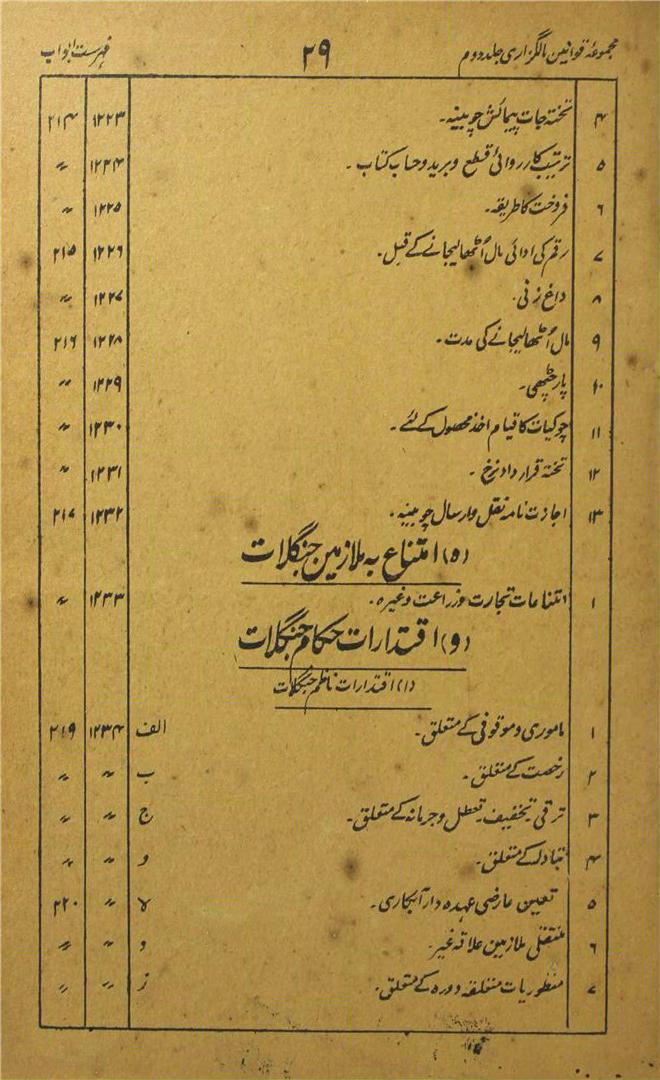 مجموعۂ قوانین مالگزاری جلد دوم ۲۹ فہرست ابواب
۴ تختہ جات پیمائش چوبینہ۔ ۱۲۲۳ ۲۱۴
۵ ترتیب کارروائی قطع وبرید وحساب کتاب ۔ ۱۲۲۴ 〃
۶ فروخت کا طریقہ۔ ۱۲۲۵ 〃
۷ رقم کی ادائی مال اُٹھالیجانے کے قبل۔ ۱۲۲۶ ۲۱۵
۸ داغ زنی۔ ۱۲۲۷ 〃
۹ مال اُٹھالیجانے کی مدت ۔ ۱۲۲۸ ۲۱۶
۱۰ پارچٹھی۔ ۱۲۲۹ 〃
۱۱ چوکیات کا قیام اخذ محصول کے لئے ۔ ۱۲۳۰ 〃
۱۲ تختہ قرارداد نرخ ۔ ۱۲۳۱ 〃
۱۳ اجازت نامہ نقل وارسال چوبینہ ۔ ۱۲۳۲ ۲۱۷
(ہ) امتناع بہ ملازمین جنگلات
۱ امتناعات تجارت وزراعت وغیرہ۔ ۱۲۳۳ 〃
(و) اقتدارات حکام جنگلات
(۱) اقتدارات ناظم جنگلات
۱ ماموری وموقوفی کے متعلق۔ الف ۱۲۳۴ ۲۱۹
۲ رخصت کے متعلق ۔ ب 〃 〃
۳ ترقی۔تخفیف۔تعطل وجرمانہ کے متعلق۔ ج 〃 〃
۴ تبادلہ کے متعلق۔ د 〃 〃
۵ تعین عارضی عہدہ دار آبکاری۔ ہ 〃 ۲۲۰
۶ منتقلی ملازمین علاقہ غیر۔ و 〃 〃
۷ منظوریات متعلقہ دورہ کے متعلق۔ ز 〃 〃